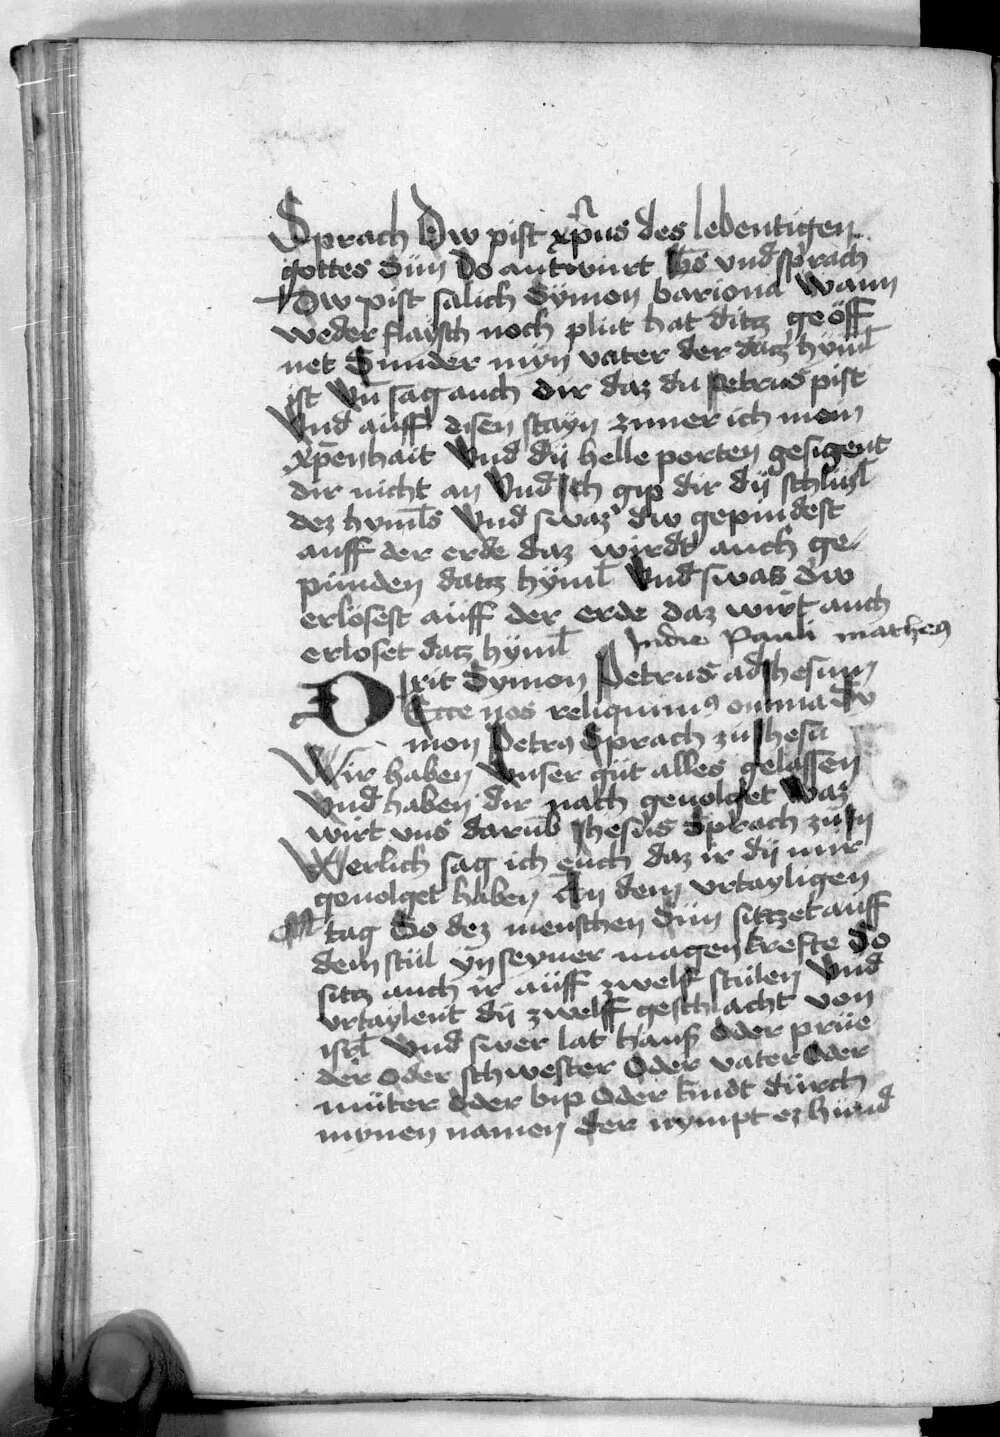 Sprach Dw pist xp̄us des lebentigen
gottes Sün Do antwürt Ihs̄ vnd sprach
Dw pist salich Sÿmon bariona wann
weder flaÿsch noch plüt hat ditz geöff
net Sunder mÿn vater der datz hÿml̄
ist Vn̄ sag auch dir daz du petrus pist
Vnd aüff disen staÿn zimer ich mein
xp̄enhait Vnd dÿ helle porten gesigent
dir nicht an Vnd Ich gip dir dÿ schlüzl̄
dez hyml̄s Vnd swaz dw gepindest
auff der erde daz wirdt auch ge-
pünden datz hÿml̄ Vnd swaß dw
erlösest aüff der erde daz wirt auch
erloset datz hÿml̄ Indie Pauli matheꝰ
Dixit Symon Petrus ad Ihesum
Ecce nos reliquimꝰ omnia Sy
mon Petrꝰ Sprach zu Ihesu
Wir haben Vnser güt alles gelassen
Vnd haben dir nach geuolget Waz
wirt vns darūb Ihesus Sprach zü In
Werlich sag ich euch daz ir dÿ mir
geuolget haben An dem vrtayligen
tag So dez menschen Sün sittzet auff
dem stül ÿn seyner magenkrefte So
sitz auch ir aüff zwelf stülen Vnd
vrtaylent dÿ zwelff geschlächt von
isrl̄ Vnd swer lat hauß oder prüe
der oder schwester Oder vater Oder
müter oder bip Oder kindt dürch
mynen namen der nympt ez hünd